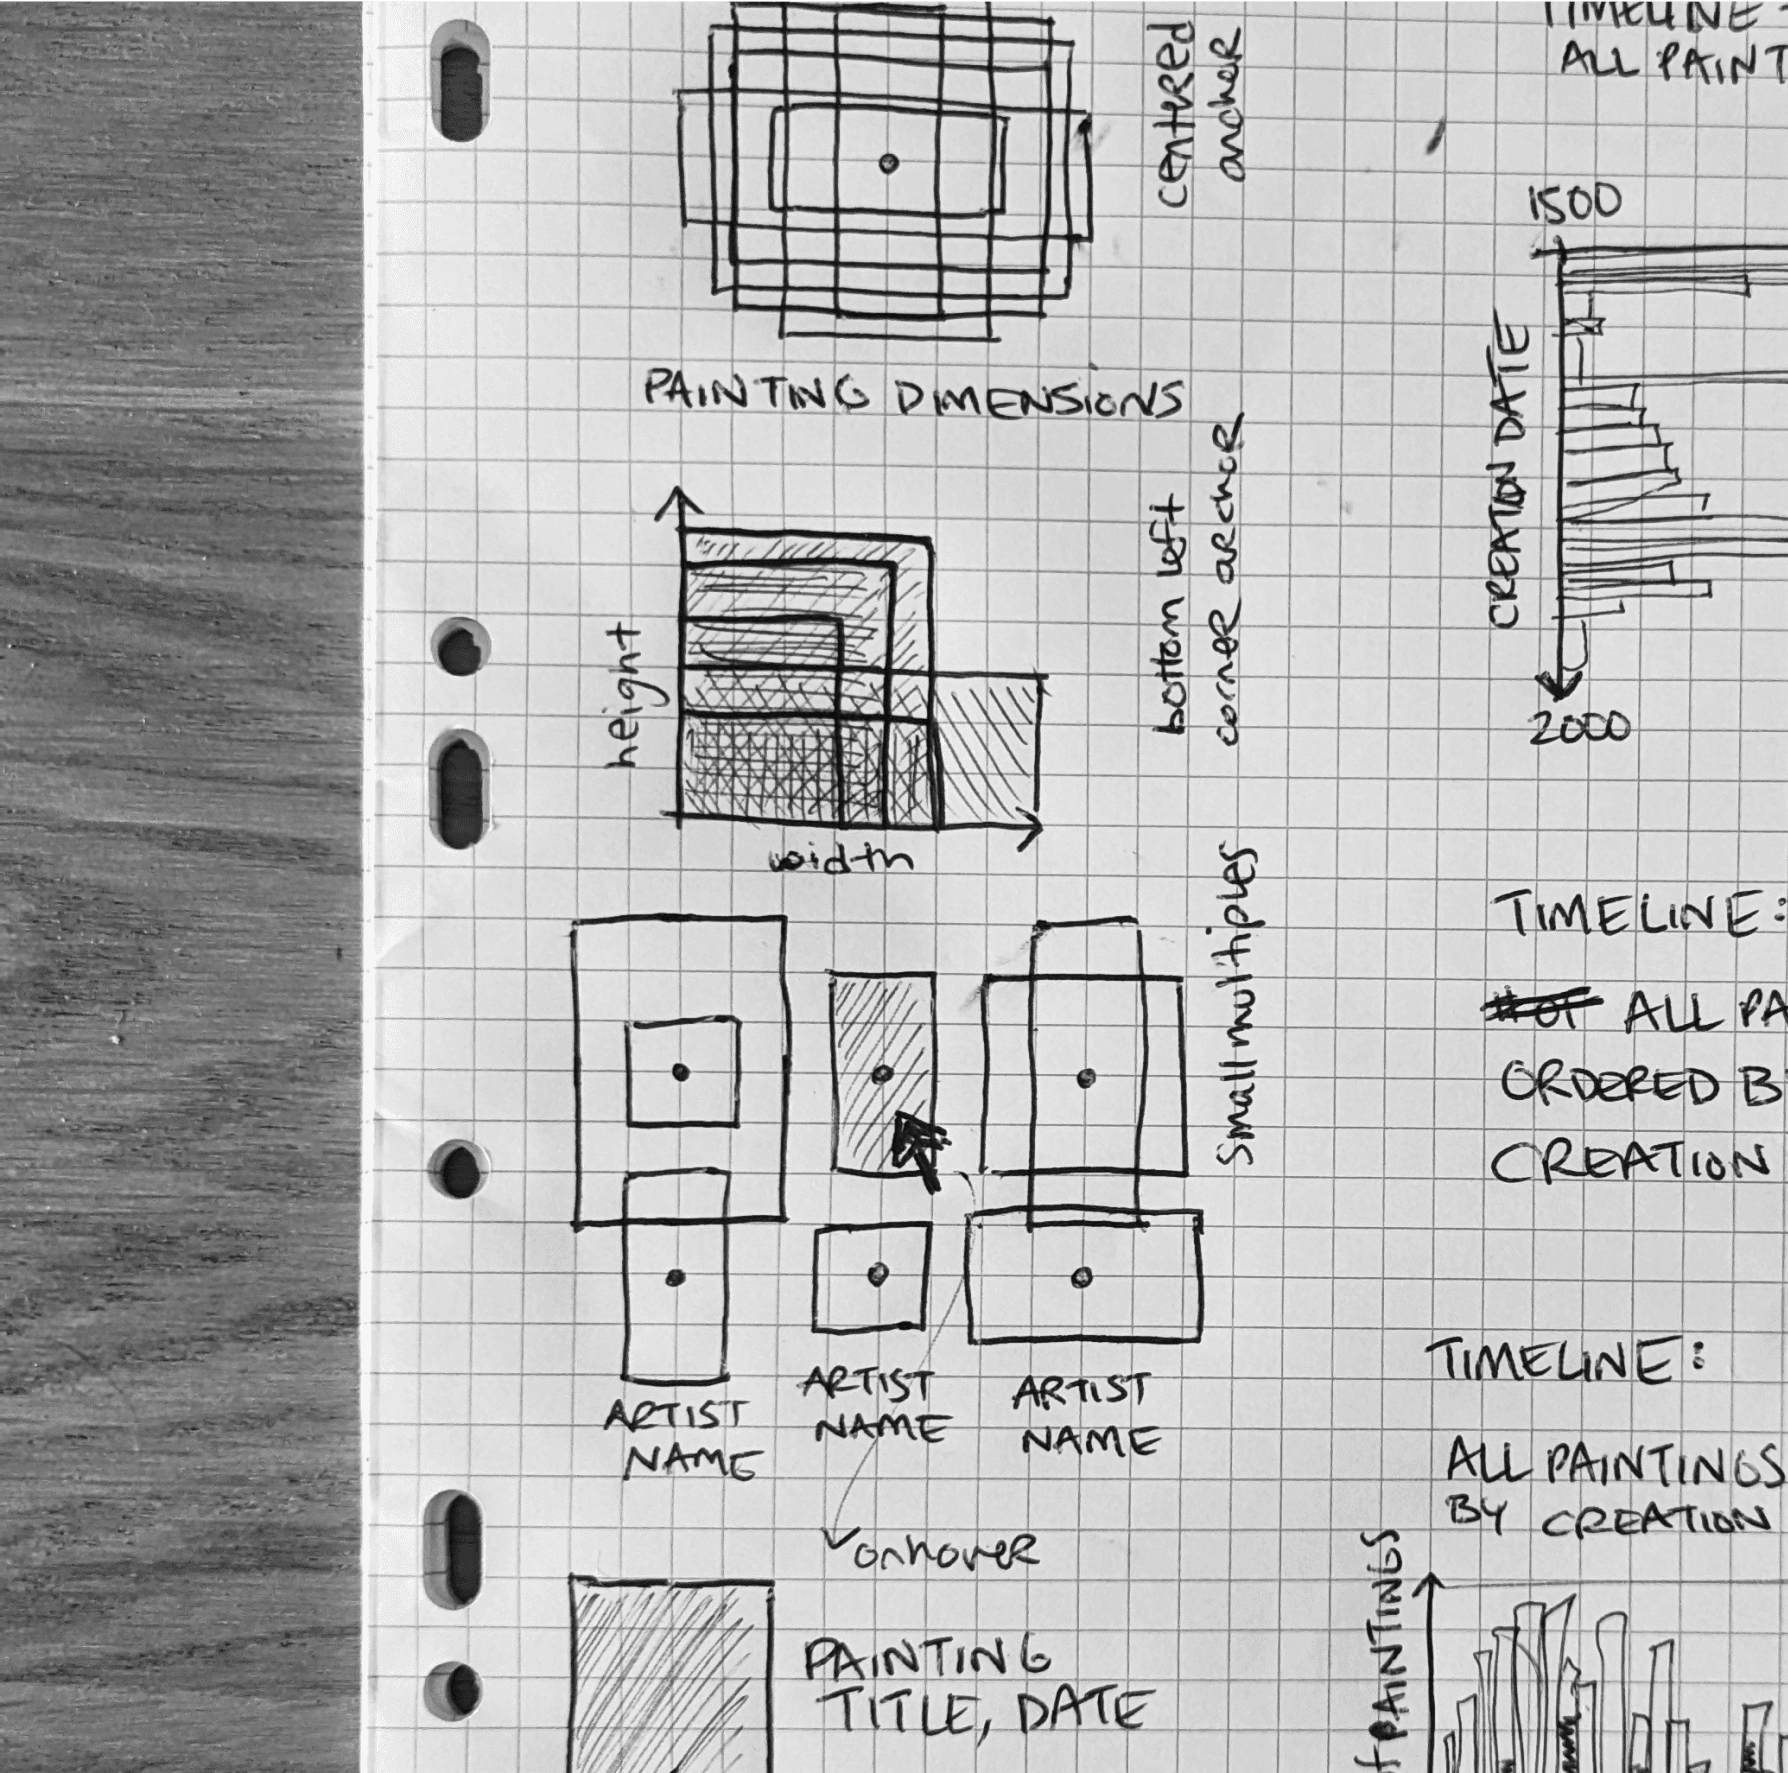 centered
anchor
PAINTING DIMENSIONS
height
width
bottom left
corner anchor
small multiples
ARTIST
NAME
ARTIST
NAME
ARTIST
NAME
onhover
PAINTING
TITLE, DATE
TIMELINE
ALL PAINT
1500
CREATION DATE
2000
TIMELINE:
# OF ALL PA
ORDERED B
CREATION
TIMELINE:
ALL PAINTINGS
BY CREATION
f PAINTINGS